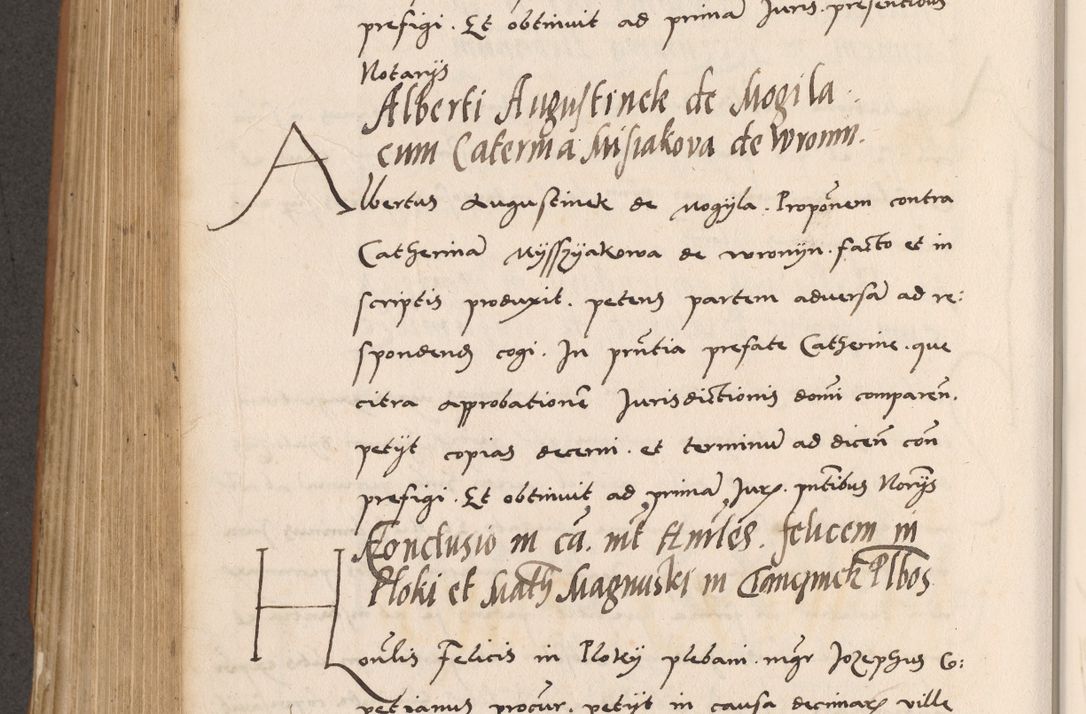 prefigi. Et obtinuit ad primā Juris. presentibus
Notarijs
Alberti Augustinek de Mogila.
cum Caterina Misiakova de Wronin.
Albertus Augustinek de Mogyla. Proponēm contra
Catherinā Myssyakowa de wronyn. facto et in
scriptis produxit. petens partem adversā ad re:
spondend cogi. In pn̄tia prefate Catherine. que
citra approbationē Jurisdictionis domī comparēn.
petyt copias decerni. et terminū ad dicen̄ con̄
prefigi. Et obtinuit ad primā Jur. pn̄tibus Norijs
Conclusio in cā. felicem in
Ploki et Math Magnuski in Plbos
Felicis in Ploky plebani. mgr Jozephus Co:
petianus procur. petyt in causa decimar ville